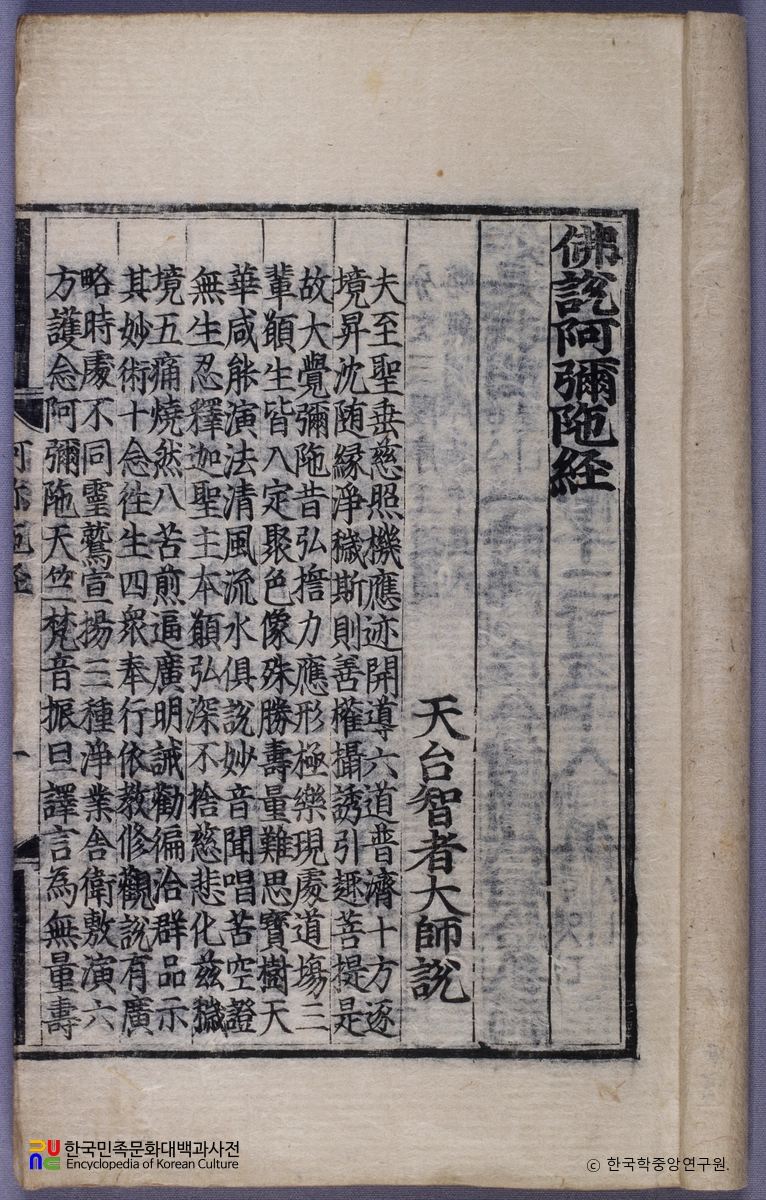 佛說阿彌陁経
天台智者大師說
夫至聖垂慈照機應迹開導六道普濟十方逐
境昇沈随緣淨穢斯則善權攝誘引趣菩提是
故大覺彌陁昔弘擔力應形極樂現處道塲三
輩顛生皆入定聚色像殊勝壽量難思寶樹天
華咸能演法清風流水俱說妙音聞唱苦空證
無生忍釋迦聖主本顛弘深不捨慈悲化兹穢
境五痛燒然八苦煎逼廣明誡勸徧治群品示
其妙術十念徃生四衆奉行依教修觀說有廣
略時處不同靈鷲宣揚三種淨業舍衛敷演六
方護念阿彌陁天竺梵音振旦譯言為無量壽
阿弥陁経
一
한국민족문화대백과사전
Encyclopedia of Korean Culture
© 한국학중앙연구원.